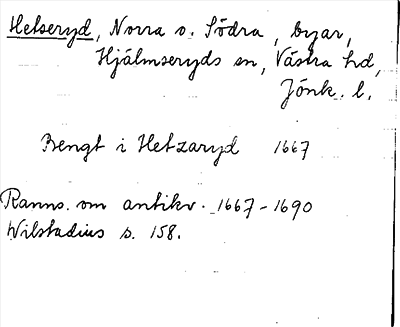 Helseryd, Norra o. Södra, byar,
Hjälmseryds sn, Västra hd,
Jönk. l.
Bengt i Hetzaryd 1667
Ranns. om antikv. 1667-1690
Wilstadius s. 158.